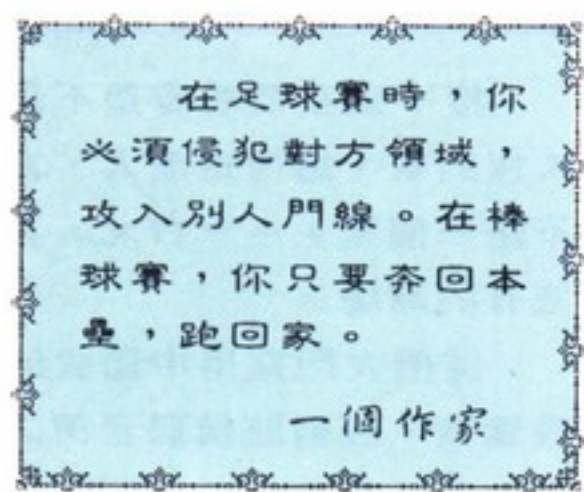 在足球賽時，你
必須侵犯對方領域，
攻入別人門線。在棒
球賽，你只要奔回本
壘，跑回家。
一個作家